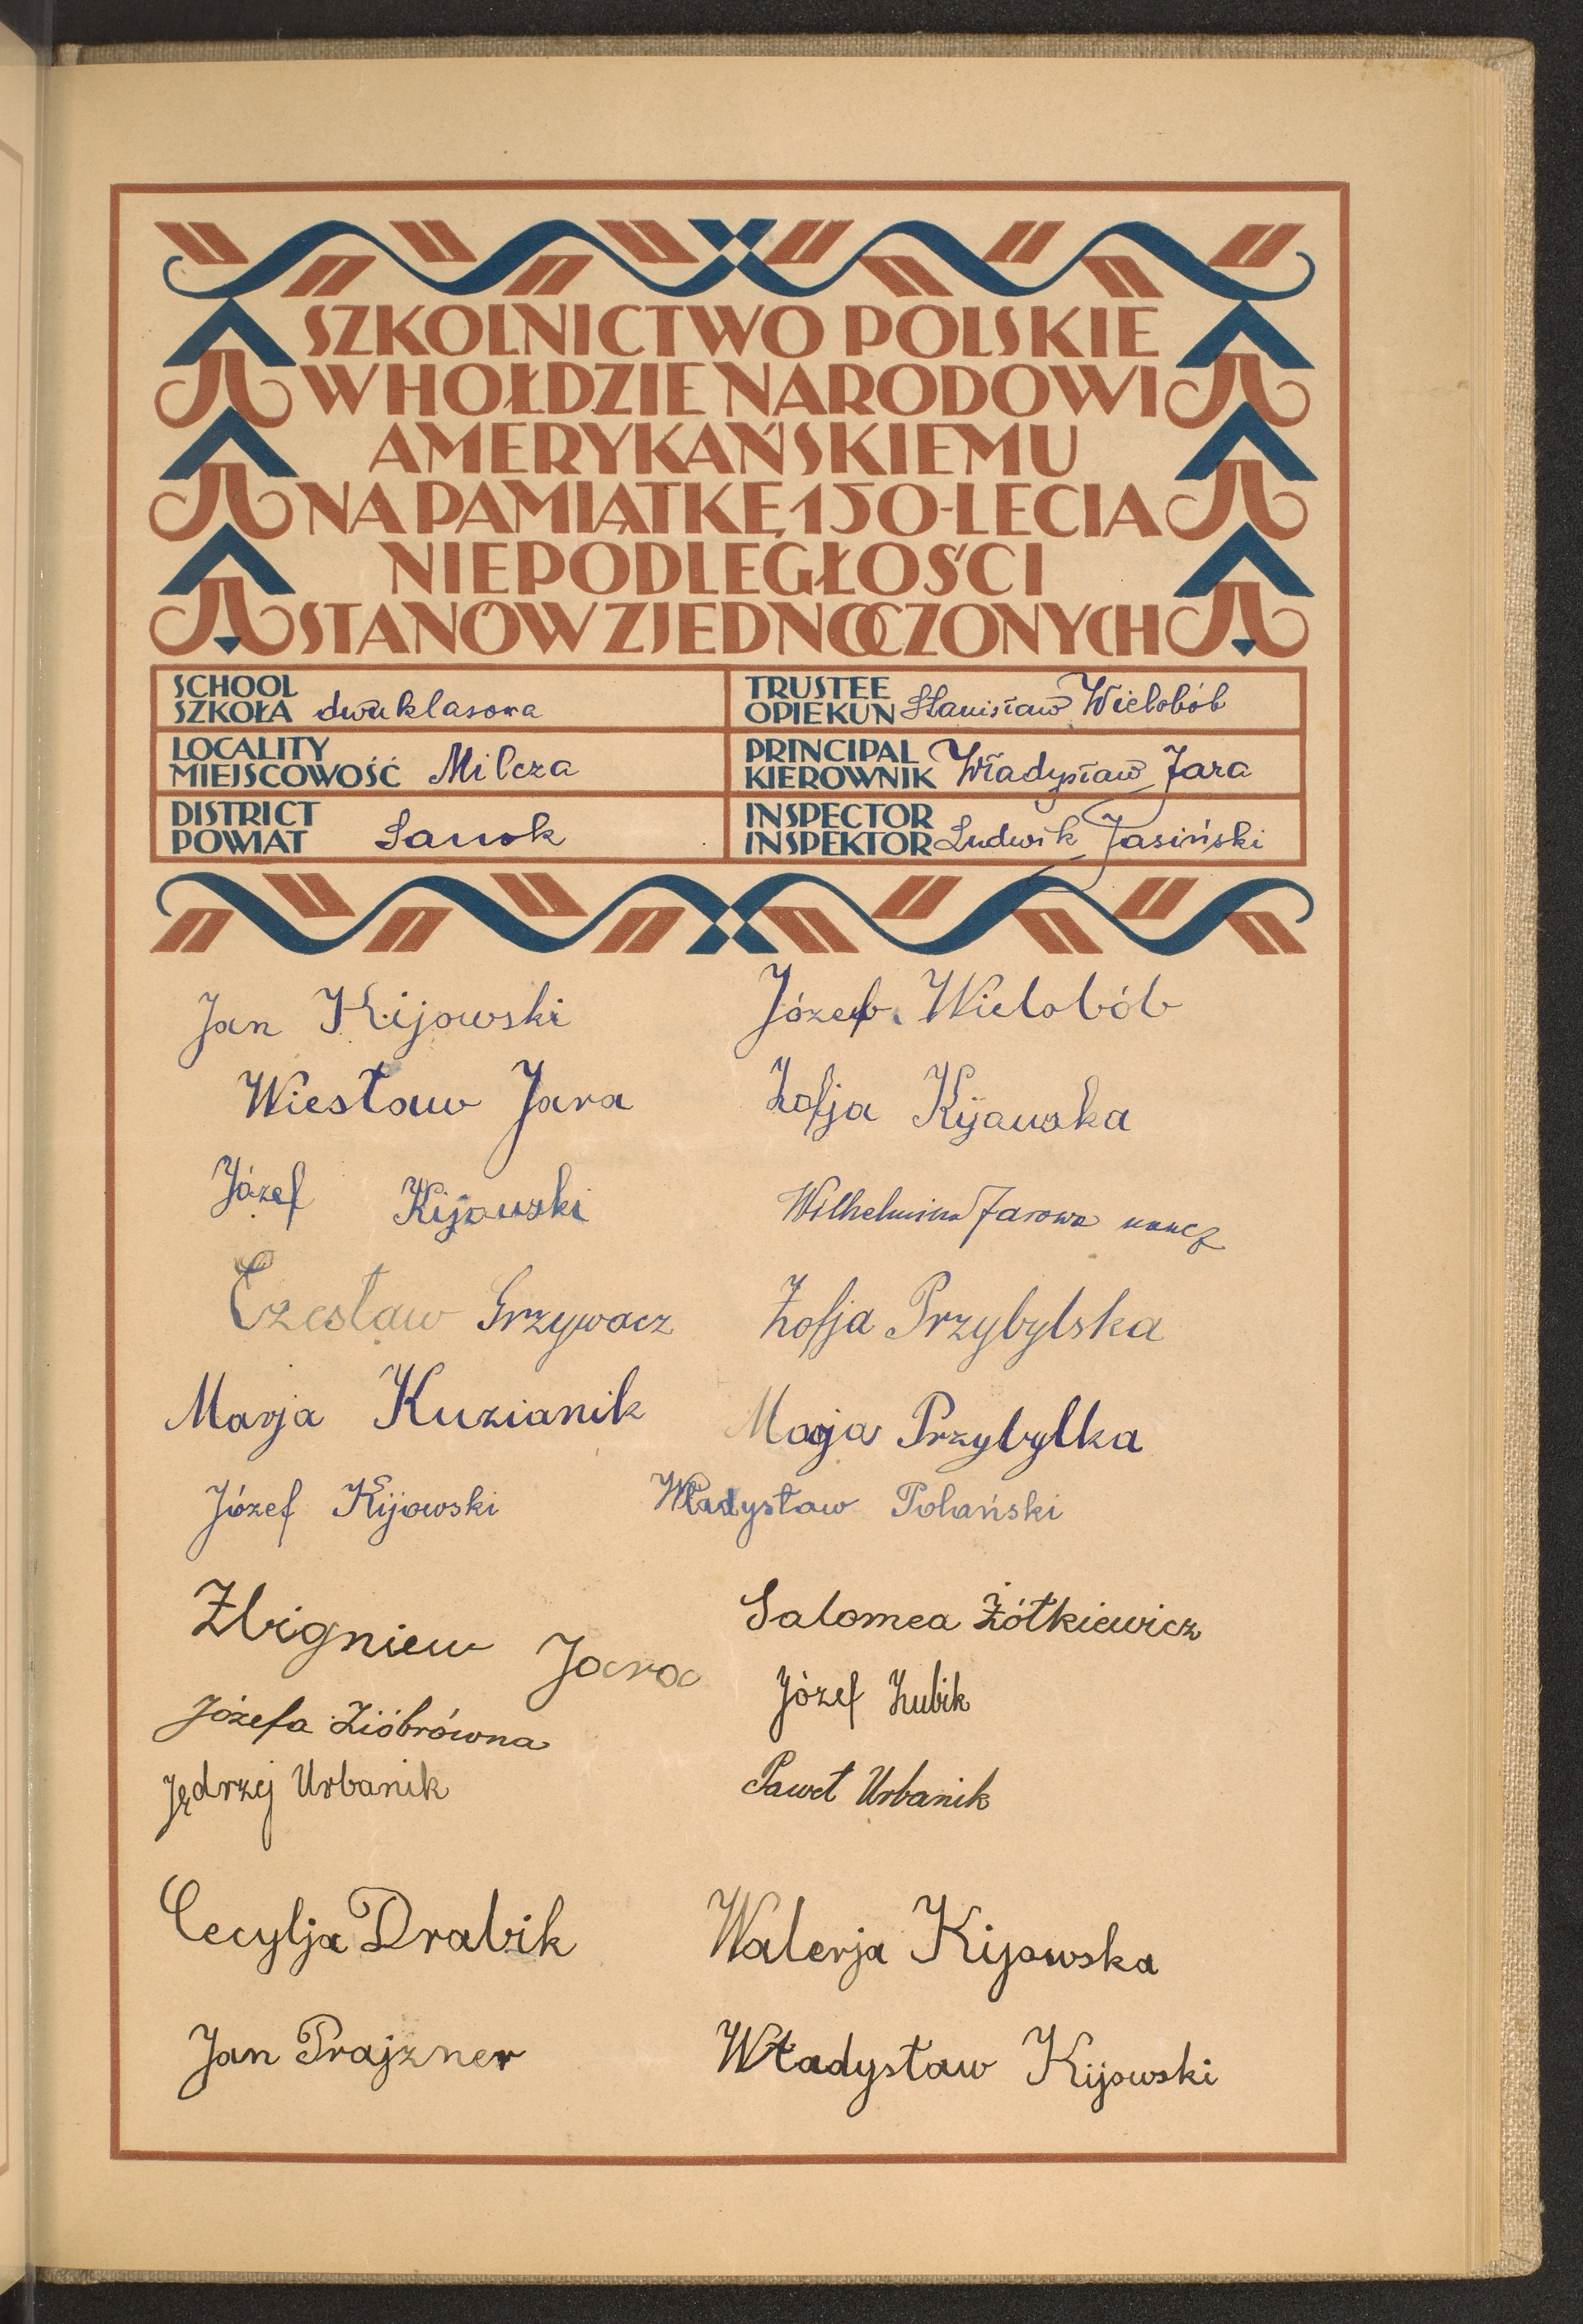 SZKOLNICTWO POLSKIE
W HOŁDZIE NARODOWI
AMERYKAŃSKIEMU
NA PAMIĄTKĘ 150-LECIA
NIEPODLEGŁOŚCI
STANÓW ZJEDNOCZONYCH
SCHOOL
SZKOŁA dwuklasowa
TRUSTEE
OPIEKUN Stanisław Wielobób
LOCALITY
MIEJSCOWOŚĆ Milcza
PRINCIPAL
KIEROWNIK Władysław Jara
DISTRICT
POWIAT Sanok
INSPECTOR
INSPEKTOR Ludwik Jasiński
Jan Kijowski
Józef Wielobób
Wiesław Jara
Zofja Kijowska
Józef Kijowski
Wilhelmina Jarowa naucz
Czesław Grzywacz
Zofja Przybylska
Marja Kuzianik
Marja Przybylka
Józef Kijowski
Władysław Polański
Zbigniew Jara
Salomea Żółkiewicz
Józef Zubik
Józefa Zióbrówna
Jędrzej Urbanik
Paweł Urbanik
Cecylja Drabik
Walerja Kijowska
Jan Prajzner
Władysław Kijowski